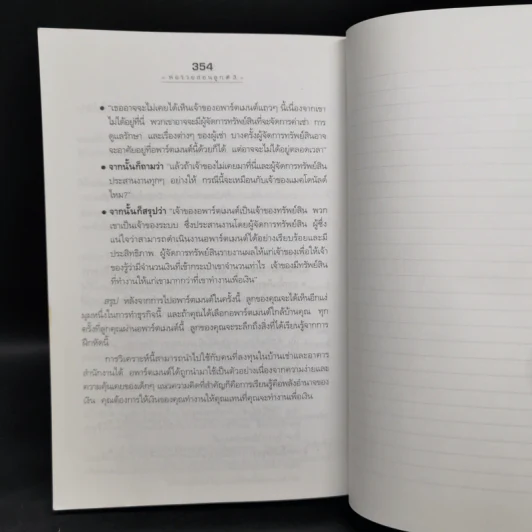 354
- พ่อรวยสอนลูก # 2 -
• "เธออาจจะไม่เคยได้เห็นเจ้าของอพาร์ตเมนต์แถวๆ นี้เนื่องจากเขา
ไม่ได้อยู่ที่นี่ พวกเขาอาจจะมีผู้จัดการทรัพย์สินที่จะจัดการค่าเช่า การ
ดูแลรักษา และเรื่องต่างๆ ของผู้เช่า บางครั้งผู้จัดการทรัพย์สินอาจ
จะอาศัยอยู่ที่อพาร์ตเมนต์นี้ด้วยก็ได้ แต่อาจจะไม่ได้อยู่ตลอดเวลา"
• จากนั้นก็ถามว่า "แล้วถ้าเจ้าของไม่เคยมาที่นี่และผู้จัดการทรัพย์สิน
ประสานงานทุกๆ อย่างให้ กรณีนี้จะเหมือนกับเจ้าของแมคโดนัลด์
ไหม?"
• จากนั้นก็สรุปว่า "เจ้าของอพาร์ตเมนต์เป็นเจ้าของทรัพย์สิน พวก
เขาเป็นเจ้าของระบบ ซึ่งประสานงานโดยผู้จัดการทรัพย์สิน ผู้ซึ่ง
แน่ใจว่าสามารถดำเนินงานอพาร์ตเมนต์ได้อย่างเรียบร้อยและมี
ประสิทธิภาพ ผู้จัดการทรัพย์สินรายงานผลให้แก่เจ้าของเพื่อให้เจ้า
ของรู้ว่ามีจำนวนเงินที่เข้ากระเป๋าเขาจำนวนเท่าไร เจ้าของมีทรัพย์สิน
ที่ทำงานให้แก่เขามากกว่าที่เขาทำงานเพื่อเงิน"
สรุป หลังจากการไปอพาร์ตเมนต์ในครั้งนี้ ลูกของคุณจะได้เห็นอีกแง่
มุมหนึ่งในการทำธุรกิจนี้ และถ้าคุณได้เลือกอพาร์ตเมนต์ใกล้บ้านคุณ ทุก
ครั้งที่ลูกคุณผ่านอพาร์ตเมนต์นี้ ลูกของคุณจะระลึกถึงสิ่งที่ได้เรียนรู้จากการ
ฝึกหัดนี้
การวิเคราะห์นี้สามารถนำไปใช้กับคนที่ลงทุนในบ้านเช่าและอาคาร
สำนักงานได้ อพาร์ตเมนต์ได้ถูกนำมาใช้เป็นตัวอย่างเนื่องจากความง่ายและ
ความคุ้นเคยของเด็กๆ แนวความคิดที่สำคัญก็คือการเรียนรู้คือพลังอำนาจของ
เงิน คุณต้องการให้เงินของคุณทำงานให้คุณแทนที่คุณจะทำงานเพื่อเงิน